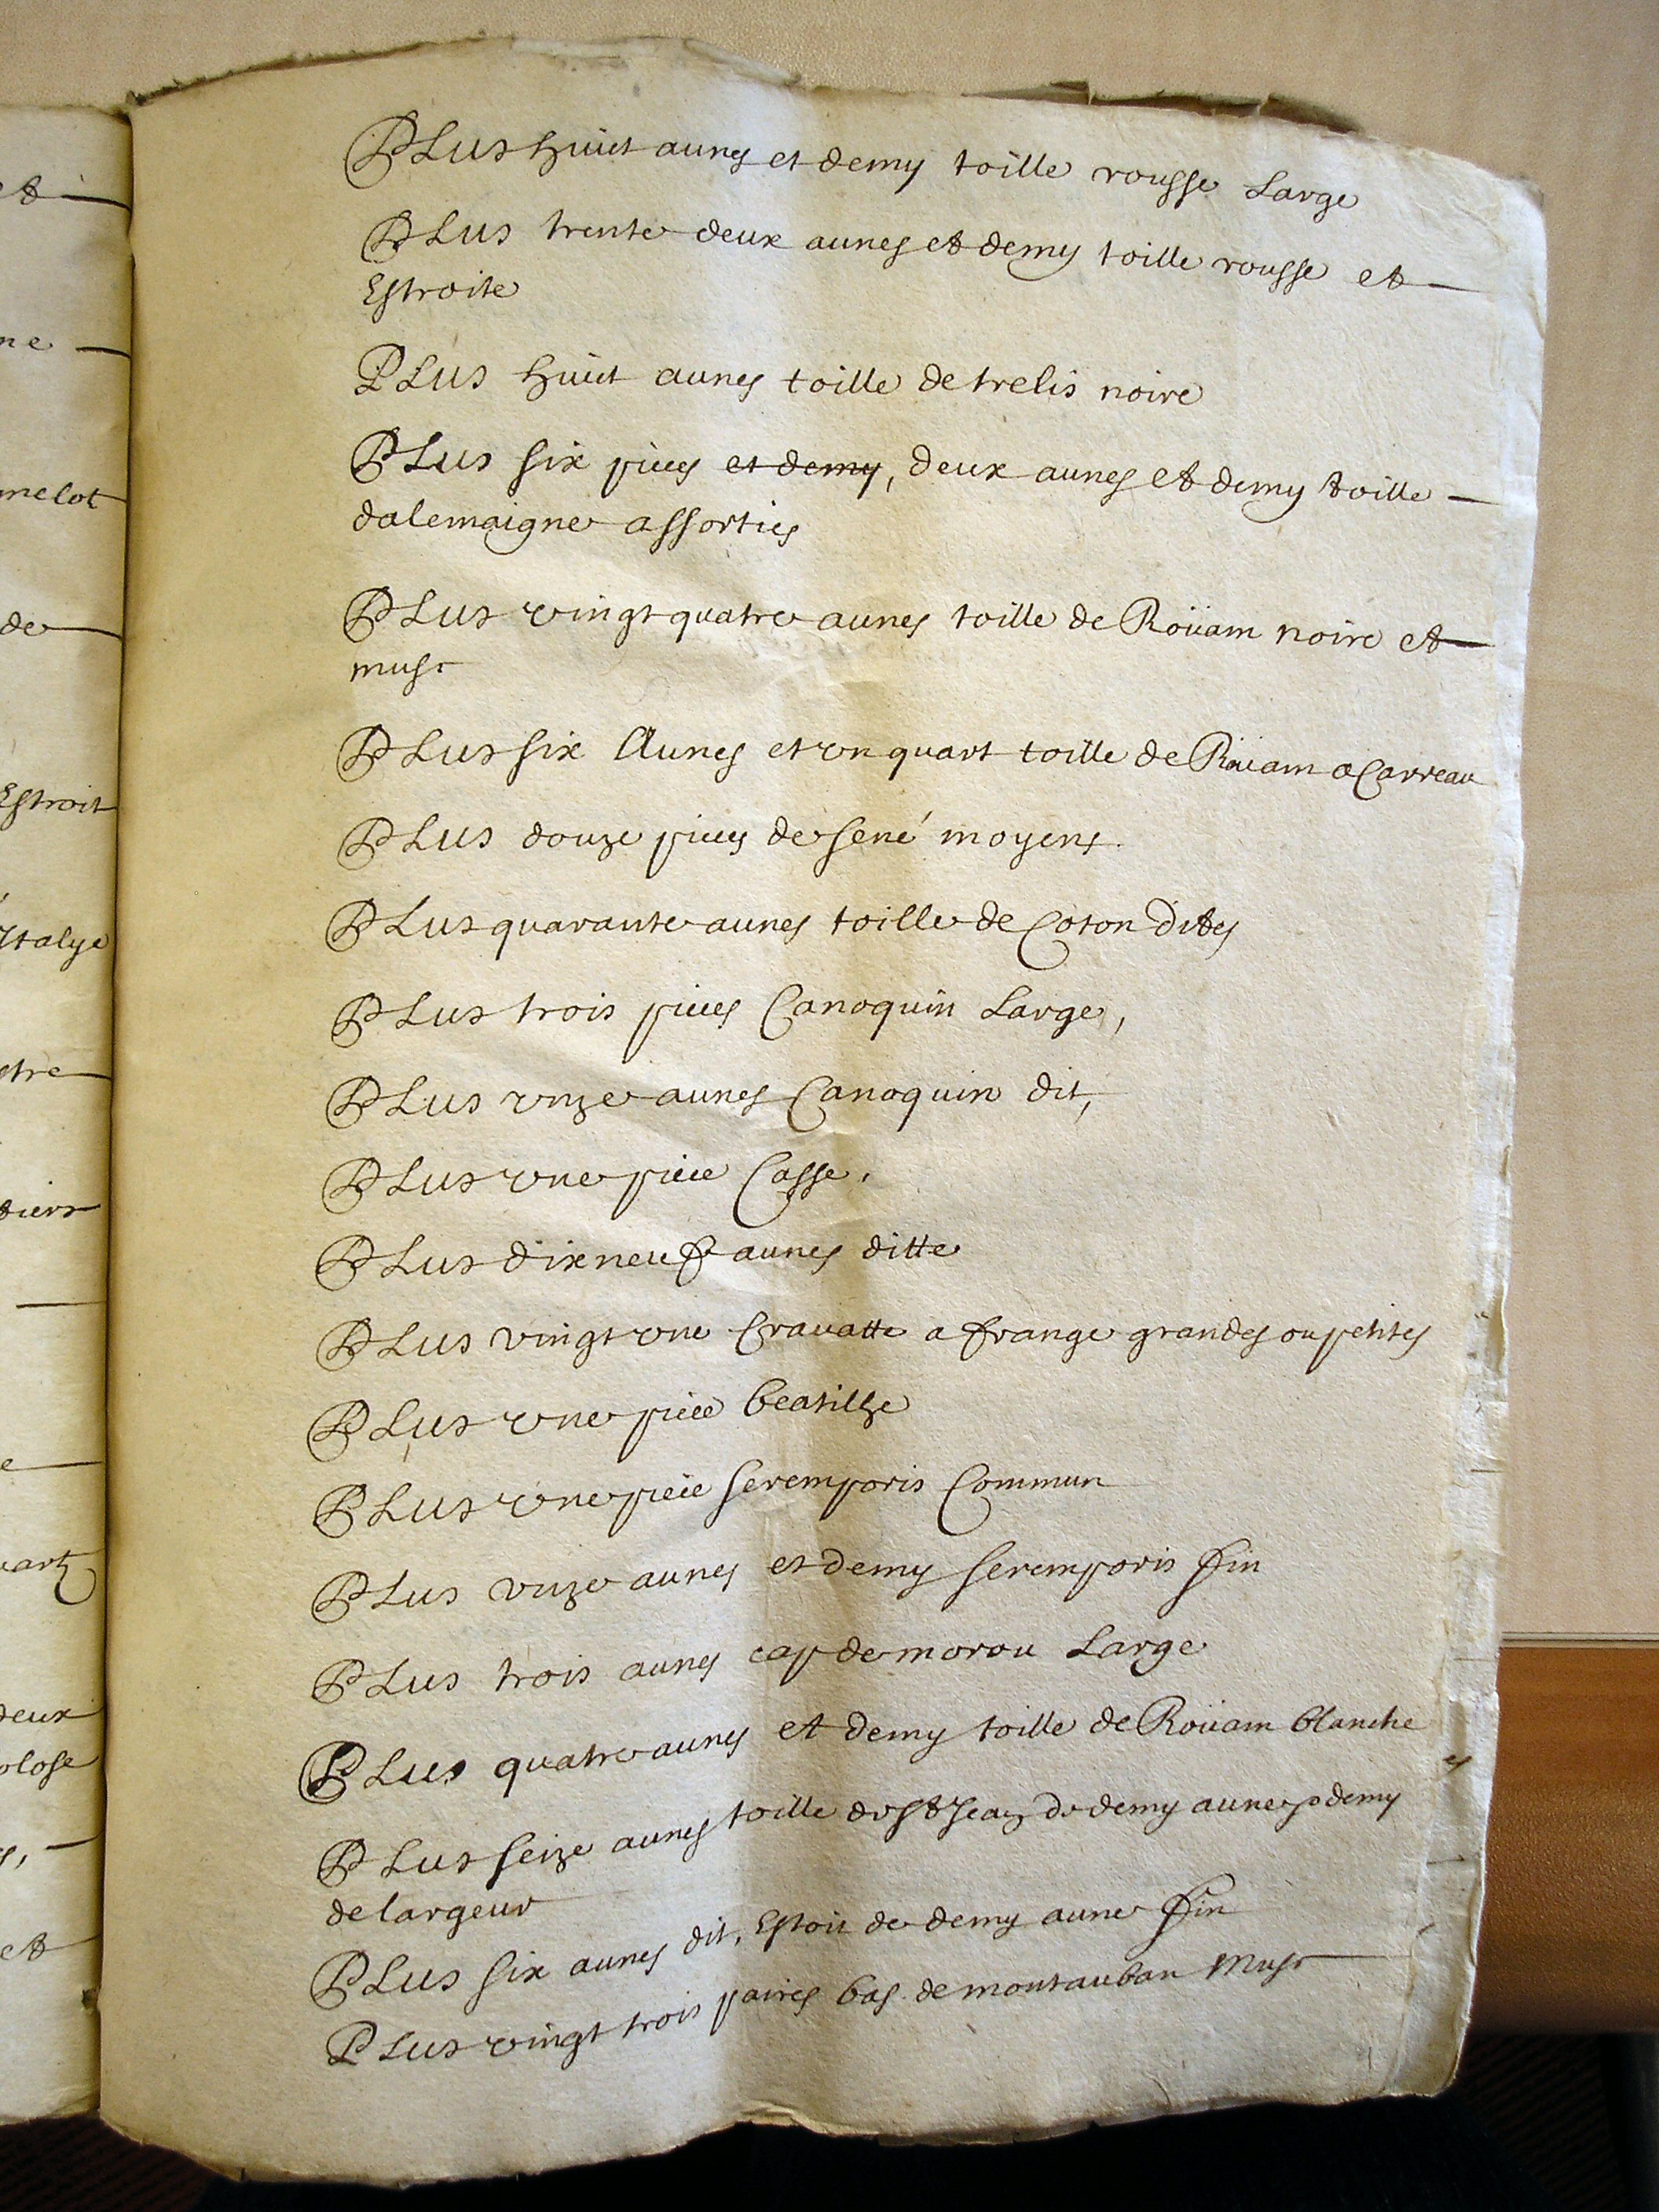 et
ne
melot
de
Estroit
Ytalye
tiers
e
deux
olose
et
PLus huict aunes et demy toille rousse Large
PLus trente deux aunes et demy toille rousse et
Estroite
PLus huict aunes toille de trelis noire
PLus six pieces et demy, deux aunes et demy toille
dalemaigne assorties
PLus vingt quatre aunes toille de Roüam noire et
musc
PLus six Aunes et vn quart toille de Roüam a Carreau
PLus douze pieces de sené moyens.
PLus quarante aunes toille de Coton dites
PLus trois pieces Canoquin Large,
PLus vnze aunes Canoquin dit,
PLus vne piece Casse,
PLus dixneuf aunes ditte
PLus vingt vne Cravatte a frange grandes ou petites
PLus vne piece beatilhe
PLus vne piece seremporis Commun
PLus vnze aunes et demy seremporis fin
PLus trois aunes cap de morou Large
PLus quatre aunes et demy toille de Roüam blanche
PLus seize aunes toille de St Jean de demy aune demy
de largeur
PLus six aunes dit, Estoit de demy aune fin
PLus vingt trois paires bas de montauban musc